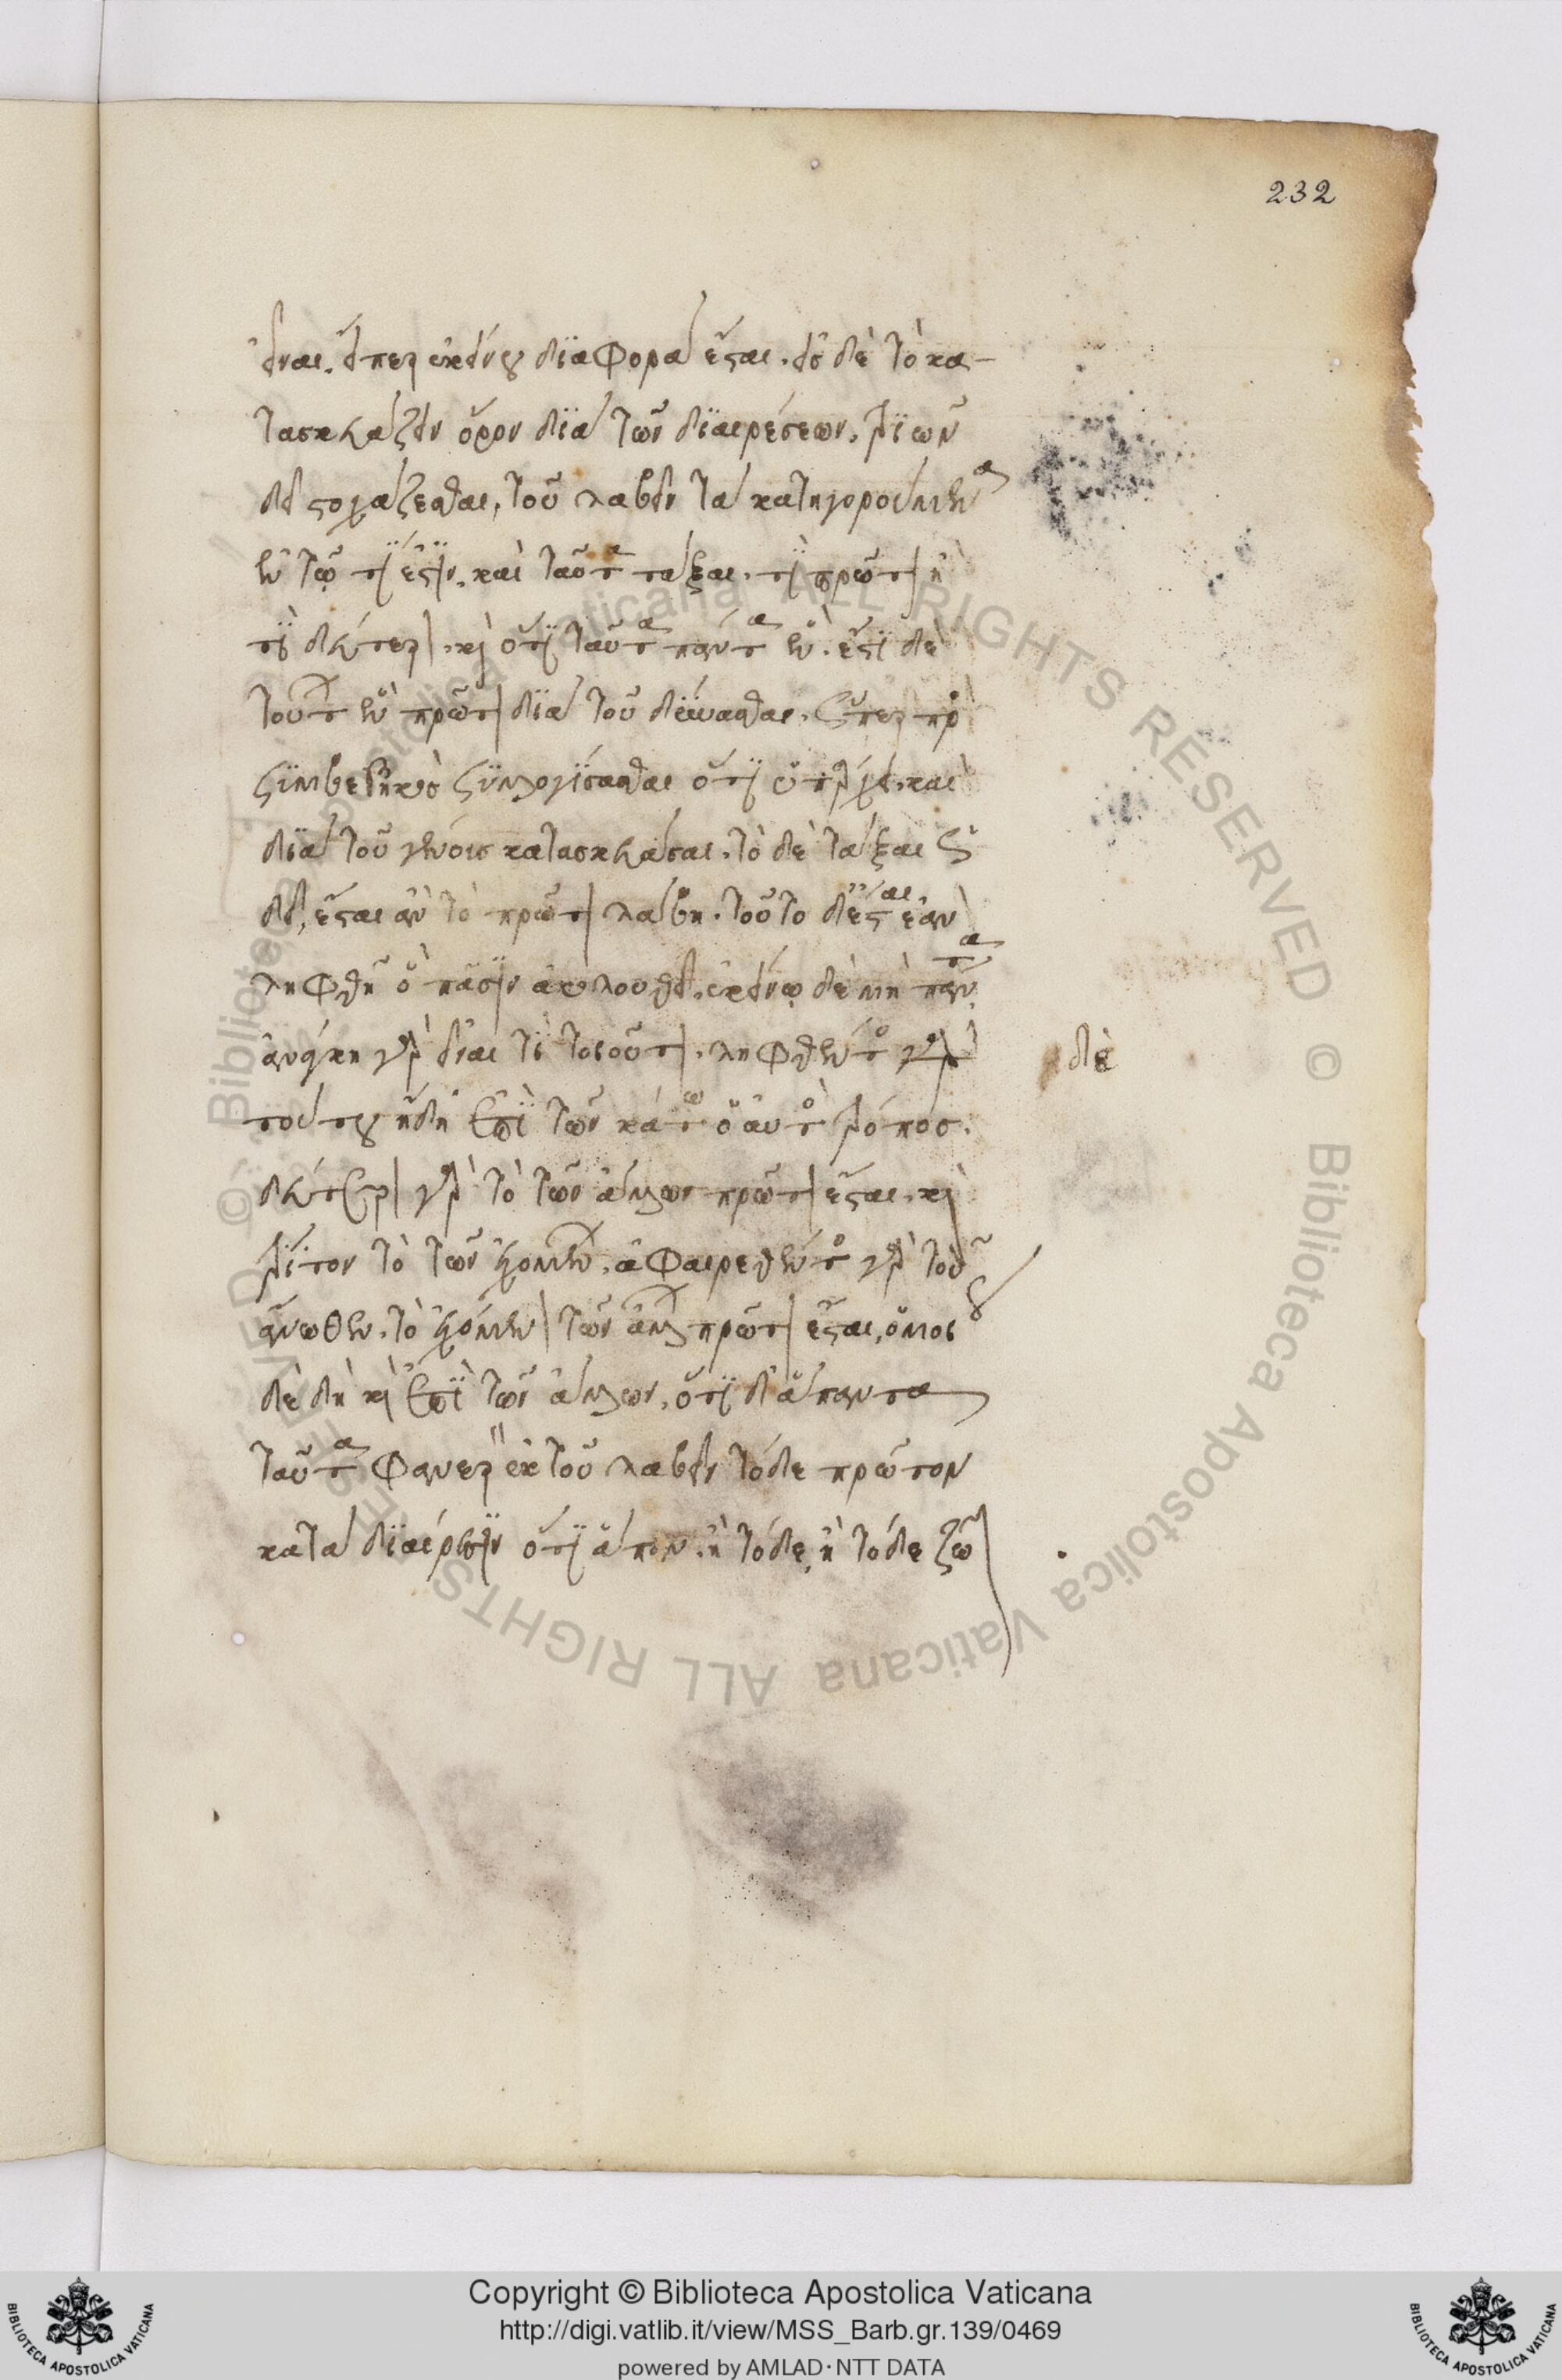 232
εἶναι. εἴπερ ἐκείνου διαφορὰ ἔσται. εἰς δὲ τὸ κα-
τασκευάζειν ὅρον διὰ τῶν διαιρέσεων, τριῶν
δεῖ στοχάζεσθαι, τοῦ λαβεῖν τὰ κατηγορούμενα
ἐν τῷ τί ἐστιν. καὶ ταῦτα τάξαι. τί πρῶτον ἢ
τί δεύτερον. καὶ ὅτι ταῦτα πάντα ἕν. ἔστι δὲ
τούτων ἓν πρῶτον διὰ τοῦ δύνασθαι. ὥσπερ πρὸς
συμβεβηκὸς συλλογίσασθαι ὅτι ὑπάρχει. καὶ
διὰ τοῦ γένους κατασκευάσαι. τὸ δὲ τάξαι ὡς
δεῖ, ἔσται ἂν τὸ πρῶτον λάβῃ. τοῦτο δ' ἔσται ἐὰν
ληφθῇ ὃ πᾶσιν ἀκολουθεῖ. ἐκείνῳ δὲ μὴ πάντα.
ἀνάγκη γὰρ εἶναί τι τοιοῦτον. ληφθέντος γὰρ
δὲ
τούτου ἤδη ἐπὶ τῶν κάτω ὁ αὐτὸς τρόπος.
δεύτερον γὰρ τὸ τῶν ἄλλων πρῶτον ἔσται. καὶ
τρίτον τὸ τῶν ἐχομένων. ἀφαιρεθέντος γὰρ τοῦ
ἄνωθεν. τὸ ἐχόμενον τῶν ἄλλων πρῶτον ἔσται. ὁμοί
δὲ δὴ καὶ ἐπὶ τῶν ἄλλων. ὅτι δ' ἅπαντα
ταῦτα φανερὸν ἐκ τοῦ λαβεῖν τό δε πρῶτον
κατὰ διαίρεσιν ὅτι ἅπαν. ἢ τόδε, ἢ τόδε ζῷον
Copyright © Biblioteca Apostolica Vaticana
http://digi.vatlib.it/view/MSS_Barb.gr.139/0469
powered by AMLAD·NTT DATA